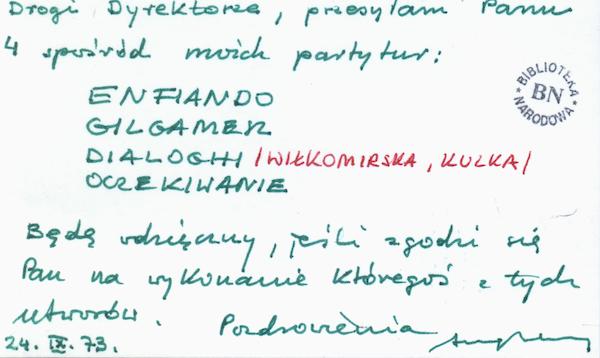 Drogi Dyrektorze, przesyłam Panu
4 spośród moich partytur:
ENFIANDO
GILGAMER
DIALOGHI /WIŁKOMIRSKA, KULKA/
OCZEKIWANIE
BIBLIOTEKA
BN
NARODOWA
Będę wdzięczny, jeśli zgodzi się
Pan na wykonanie któregoś z tych
utworów. Pozdrowienia
24. IX. 73.